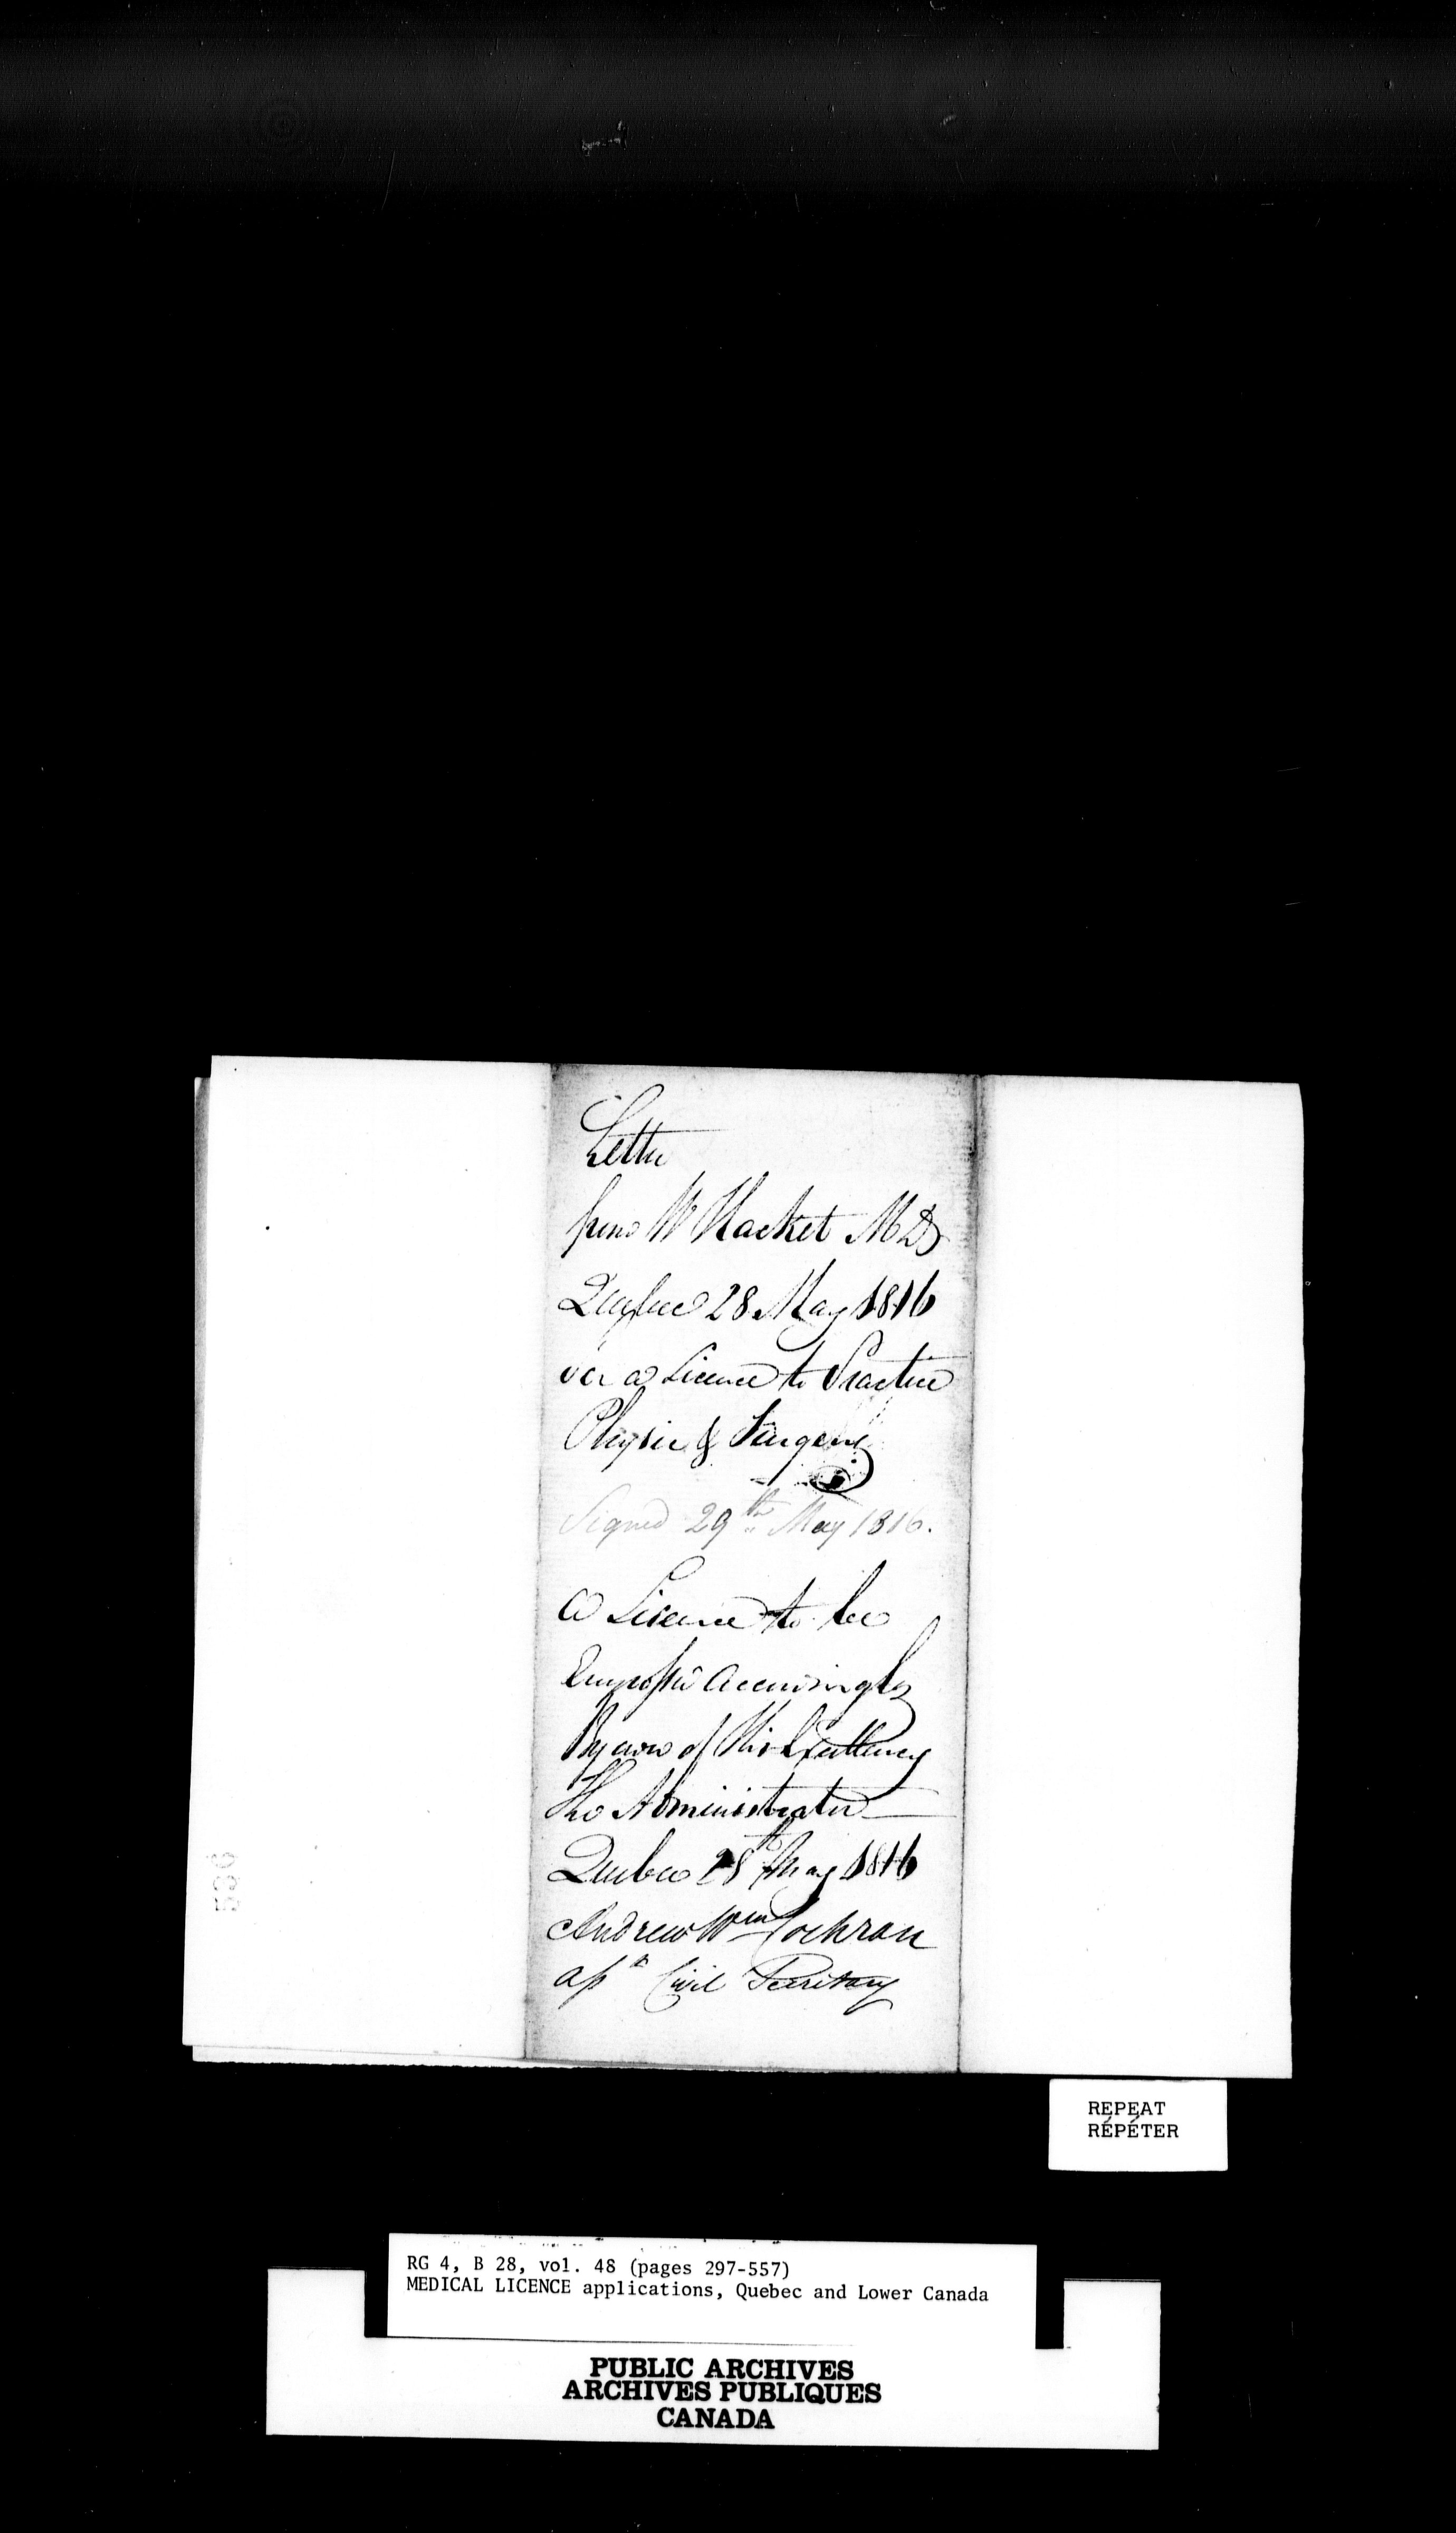 Letter
from W Hacket MD
Quebec 28 May 1816
for a Licence to Practice
Physic & Surgery
Signed 29th May 1816.
a Licence to be
Engrossed accordingly
By order of His Excellency
the Administrator
Quebec 28th May 1816
Andrew Wm Cochran
asst Civil Secretary
536
REPEAT
RÉPÉTER
RG 4, B 28, vol. 48 (pages 297-557)
MEDICAL LICENCE applications, Quebec and Lower Canada
PUBLIC ARCHIVES
ARCHIVES PUBLIQUES
CANADA